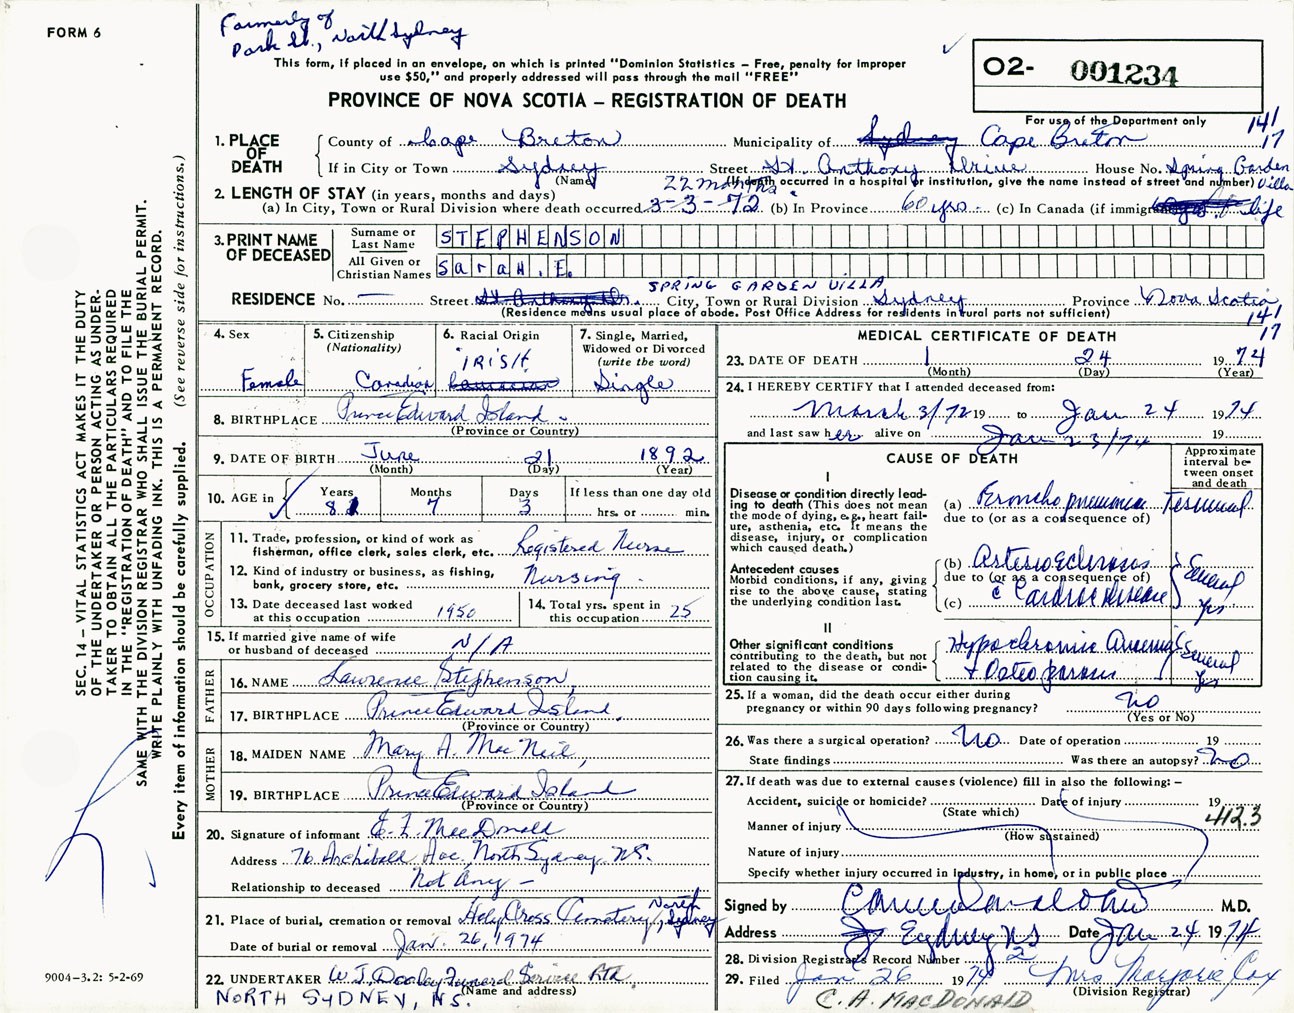 FORM 6
Formerly of
Park St., North Sydney
This form, if placed in an envelope, on which is printed "Dominion Statistics – Free, penalty for improper
use $50," and properly addressed will pass through the mail "FREE"
PROVINCE OF NOVA SCOTIA – REGISTRATION OF DEATH
O2- 001234
For use of the Department only
141
17
1. PLACE OF DEATH
County of Cape Breton Municipality of Sydney Cape Breton
If in City or Town Sydney Street St. Anthony Drive House No. Spring Garden Villa
(Name) (If death occurred in a hospital or institution, give the name instead of street and number)
22 months
2. LENGTH OF STAY (in years, months and days)
(a) In City, Town or Rural Division where death occurred 3-3-72 (b) In Province 60 yrs. (c) In Canada (if immigrant) life
3. PRINT NAME OF DECEASED
Surname or Last Name STEPHENSON
All Given or Christian Names SaraH. E.
SPRING GARDEN VILLA
RESIDENCE No. — Street St. Anthony Dr. City, Town or Rural Division Sydney Province Nova Scotia
(Residence means usual place of abode. Post Office Address for residents in rural parts not sufficient)
141
17
4. Sex Female
5. Citizenship (Nationality) Canadian
6. Racial Origin IRISH
7. Single, Married, Widowed or Divorced (write the word) Single
8. BIRTHPLACE Prince Edward Island
(Province or Country)
9. DATE OF BIRTH June 21 1892
(Month) (Day) (Year)
10. AGE in Years 81 Months 7 Days 3 If less than one day old hrs. or min.
OCCUPATION
11. Trade, profession, or kind of work as fisherman, office clerk, sales clerk, etc. Registered Nurse
12. Kind of industry or business, as fishing, bank, grocery store, etc. Nursing
13. Date deceased last worked at this occupation 1950
14. Total yrs. spent in this occupation 25
15. If married give name of wife or husband of deceased N/A
FATHER
16. NAME Lawrence Stephenson,
17. BIRTHPLACE Prince Edward Island.
(Province or Country)
MOTHER
18. MAIDEN NAME Mary A. MacNeil,
19. BIRTHPLACE Prince Edward Island
(Province or Country)
20. Signature of informant E. L. MacDonald
Address 76 Archibald Ave. North Sydney N.S.
Relationship to deceased Not Any –
21. Place of burial, cremation or removal Holy Cross Cemetery, North Sydney
Date of burial or removal Jan. 26, 1974
22. UNDERTAKER W. J. Dooley Funeral Service Ltd.
(Name and address)
NORTH SYDNEY, N.S.
MEDICAL CERTIFICATE OF DEATH
23. DATE OF DEATH 1 24 1974
(Month) (Day) (Year)
24. I HEREBY CERTIFY that I attended deceased from:
March 3/72 19 to Jan 24 1974
and last saw her alive on Jan 23/74 19
CAUSE OF DEATH
Approximate interval between onset and death
I
Disease or condition directly leading to death (This does not mean the mode of dying, e.g., heart failure, asthenia, etc. It means the disease, injury, or complication which caused death.)
(a) Bronchopneumonia Terminal
due to (or as a consequence of)
Antecedent causes
Morbid conditions, if any, giving rise to the above cause, stating the underlying condition last.
(b) Arteriosclerosis
due to (or as a consequence of)
(c) c Cardiac disease Several Yrs
II
Other significant conditions
contributing to the death, but not related to the disease or condition causing it.
Hypochromic Anemia & Osteoporosis Several Yrs
25. If a woman, did the death occur either during pregnancy or within 90 days following pregnancy? No
(Yes or No)
26. Was there a surgical operation? No Date of operation 19
State findings Was there an autopsy? No
27. If death was due to external causes (violence) fill in also the following: –
Accident, suicide or homicide? (State which) Date of injury 19
4123
Manner of injury
(How sustained)
Nature of injury
Specify whether injury occurred in industry, in home, or in public place
Signed by M.D.
Address Sydney NS Date Jan 24 1974
28. Division Registrar's Record Number 2
29. Filed Jan 26 1974 Mrs Marjorie Cox
(Division Registrar)
C. A. MACDONALD
SEC. 14 – VITAL STATISTICS ACT MAKES IT THE DUTY
OF THE UNDERTAKER OR PERSON ACTING AS UNDER-
TAKER TO OBTAIN ALL THE PARTICULARS REQUIRED
IN THE "REGISTRATION OF DEATH" AND TO FILE THE
SAME WITH THE DIVISION REGISTRAR WHO SHALL ISSUE THE BURIAL PERMIT.
WRITE PLAINLY WITH UNFADING INK. THIS IS A PERMANENT RECORD.
Every item of information should be carefully supplied. (See reverse side for instructions.)
9004–3.2: 5-2-69